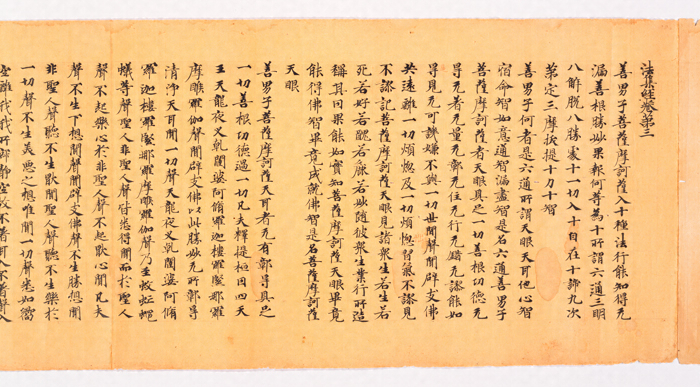 法集經卷第三
善男子菩薩摩訶薩入十種法行能知得无
漏善根勝妙果報何等為十所謂六通三明
八解脫八勝處十一切入十自在十諦九次
第定三摩拔提十力十智
善男子何者是六通所謂天眼天耳他心智
宿命智如意通智漏盡智是名六通善男子
菩薩摩訶薩者天眼具足一切善根功德无
导无者无量无鄣无住无行无錯謬能如
导見无可譏嫌不與一切世間聲聞辟支佛
共遠離一切煩惱及一切煩惱習氣不謬見
不謬記菩薩摩訶薩天眼見諸衆生若生若
死若好若醜若麁若妙隨彼衆生業行所造
稱其因果能如實知菩薩摩訶薩天眼畢竟
能得佛智畢竟成就佛智是名菩薩摩訶薩
天眼
善男子菩薩摩訶薩天耳者无有鄣导具足
一切善根功德過一切凡夫釋提桓因四天
王天龍夜叉乹闥婆阿脩羅迦樓羅緊那羅
摩睺羅伽聲聞辟支佛以此勝妙无所鄣导
清淨天耳聞一切聲天龍夜叉乹闥婆阿脩
羅迦樓羅緊那羅摩睺羅伽聲乃至蚊虻蠅
蟻等聲聖人聲非聖人聲皆悉得聞而於聖人
聲不起樂心於非聖人聲不起猒心聞凡夫
聲不生下想聞聲聞辟支佛聲不生勝想聞
非聖人聲聽不生猒聞聖人聲聽不生樂於
一切聲不生美惡之想唯聞一切聲悉如響
空離我我所